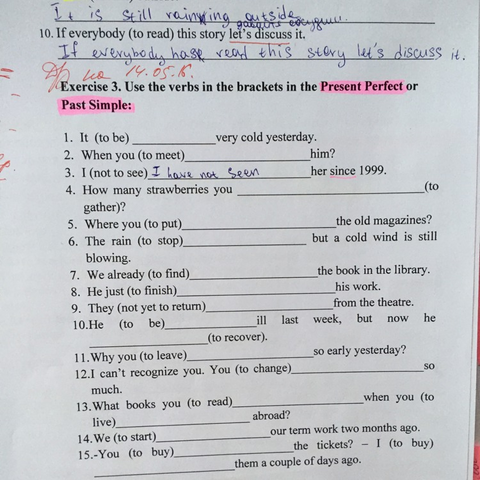 It is still raining outside.
10. If everybody (to read) this story let's discuss it.
If everybody has read this story let's discuss it.
на 14.05.18.
Exercise 3. Use the verbs in the brackets in the Present Perfect or
Past Simple:
1. It (to be) ______________ very cold yesterday.
2. When you (to meet)______________________him?
3. I (not to see) I have not seen her since 1999.
4. How many strawberries you ______________________________(to
gather)?
5. Where you (to put)________________________the old magazines?
6. The rain (to stop)______________________ but a cold wind is still
blowing.
7. We already (to find)______________________the book in the library.
8. He just (to finish)__________________________his work.
9. They (not yet to return)______________________from the theatre.
10.He (to be)________________ill last week, but now he
____________________(to recover).
11.Why you (to leave)______________________so early yesterday?
12.I can't recognize you. You (to change)______________________so
much.
13.What books you (to read)______________________when you (to
live)______________________ abroad?
14.We (to start)____________________our term work two months ago.
15.-You (to buy)____________________the tickets? – I (to buy)
________________________them a couple of days ago.